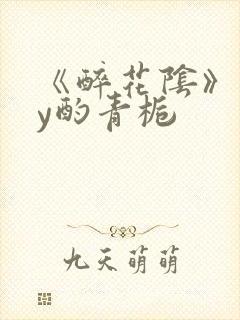 《醉花陰》
y酌青梔
九天萌萌